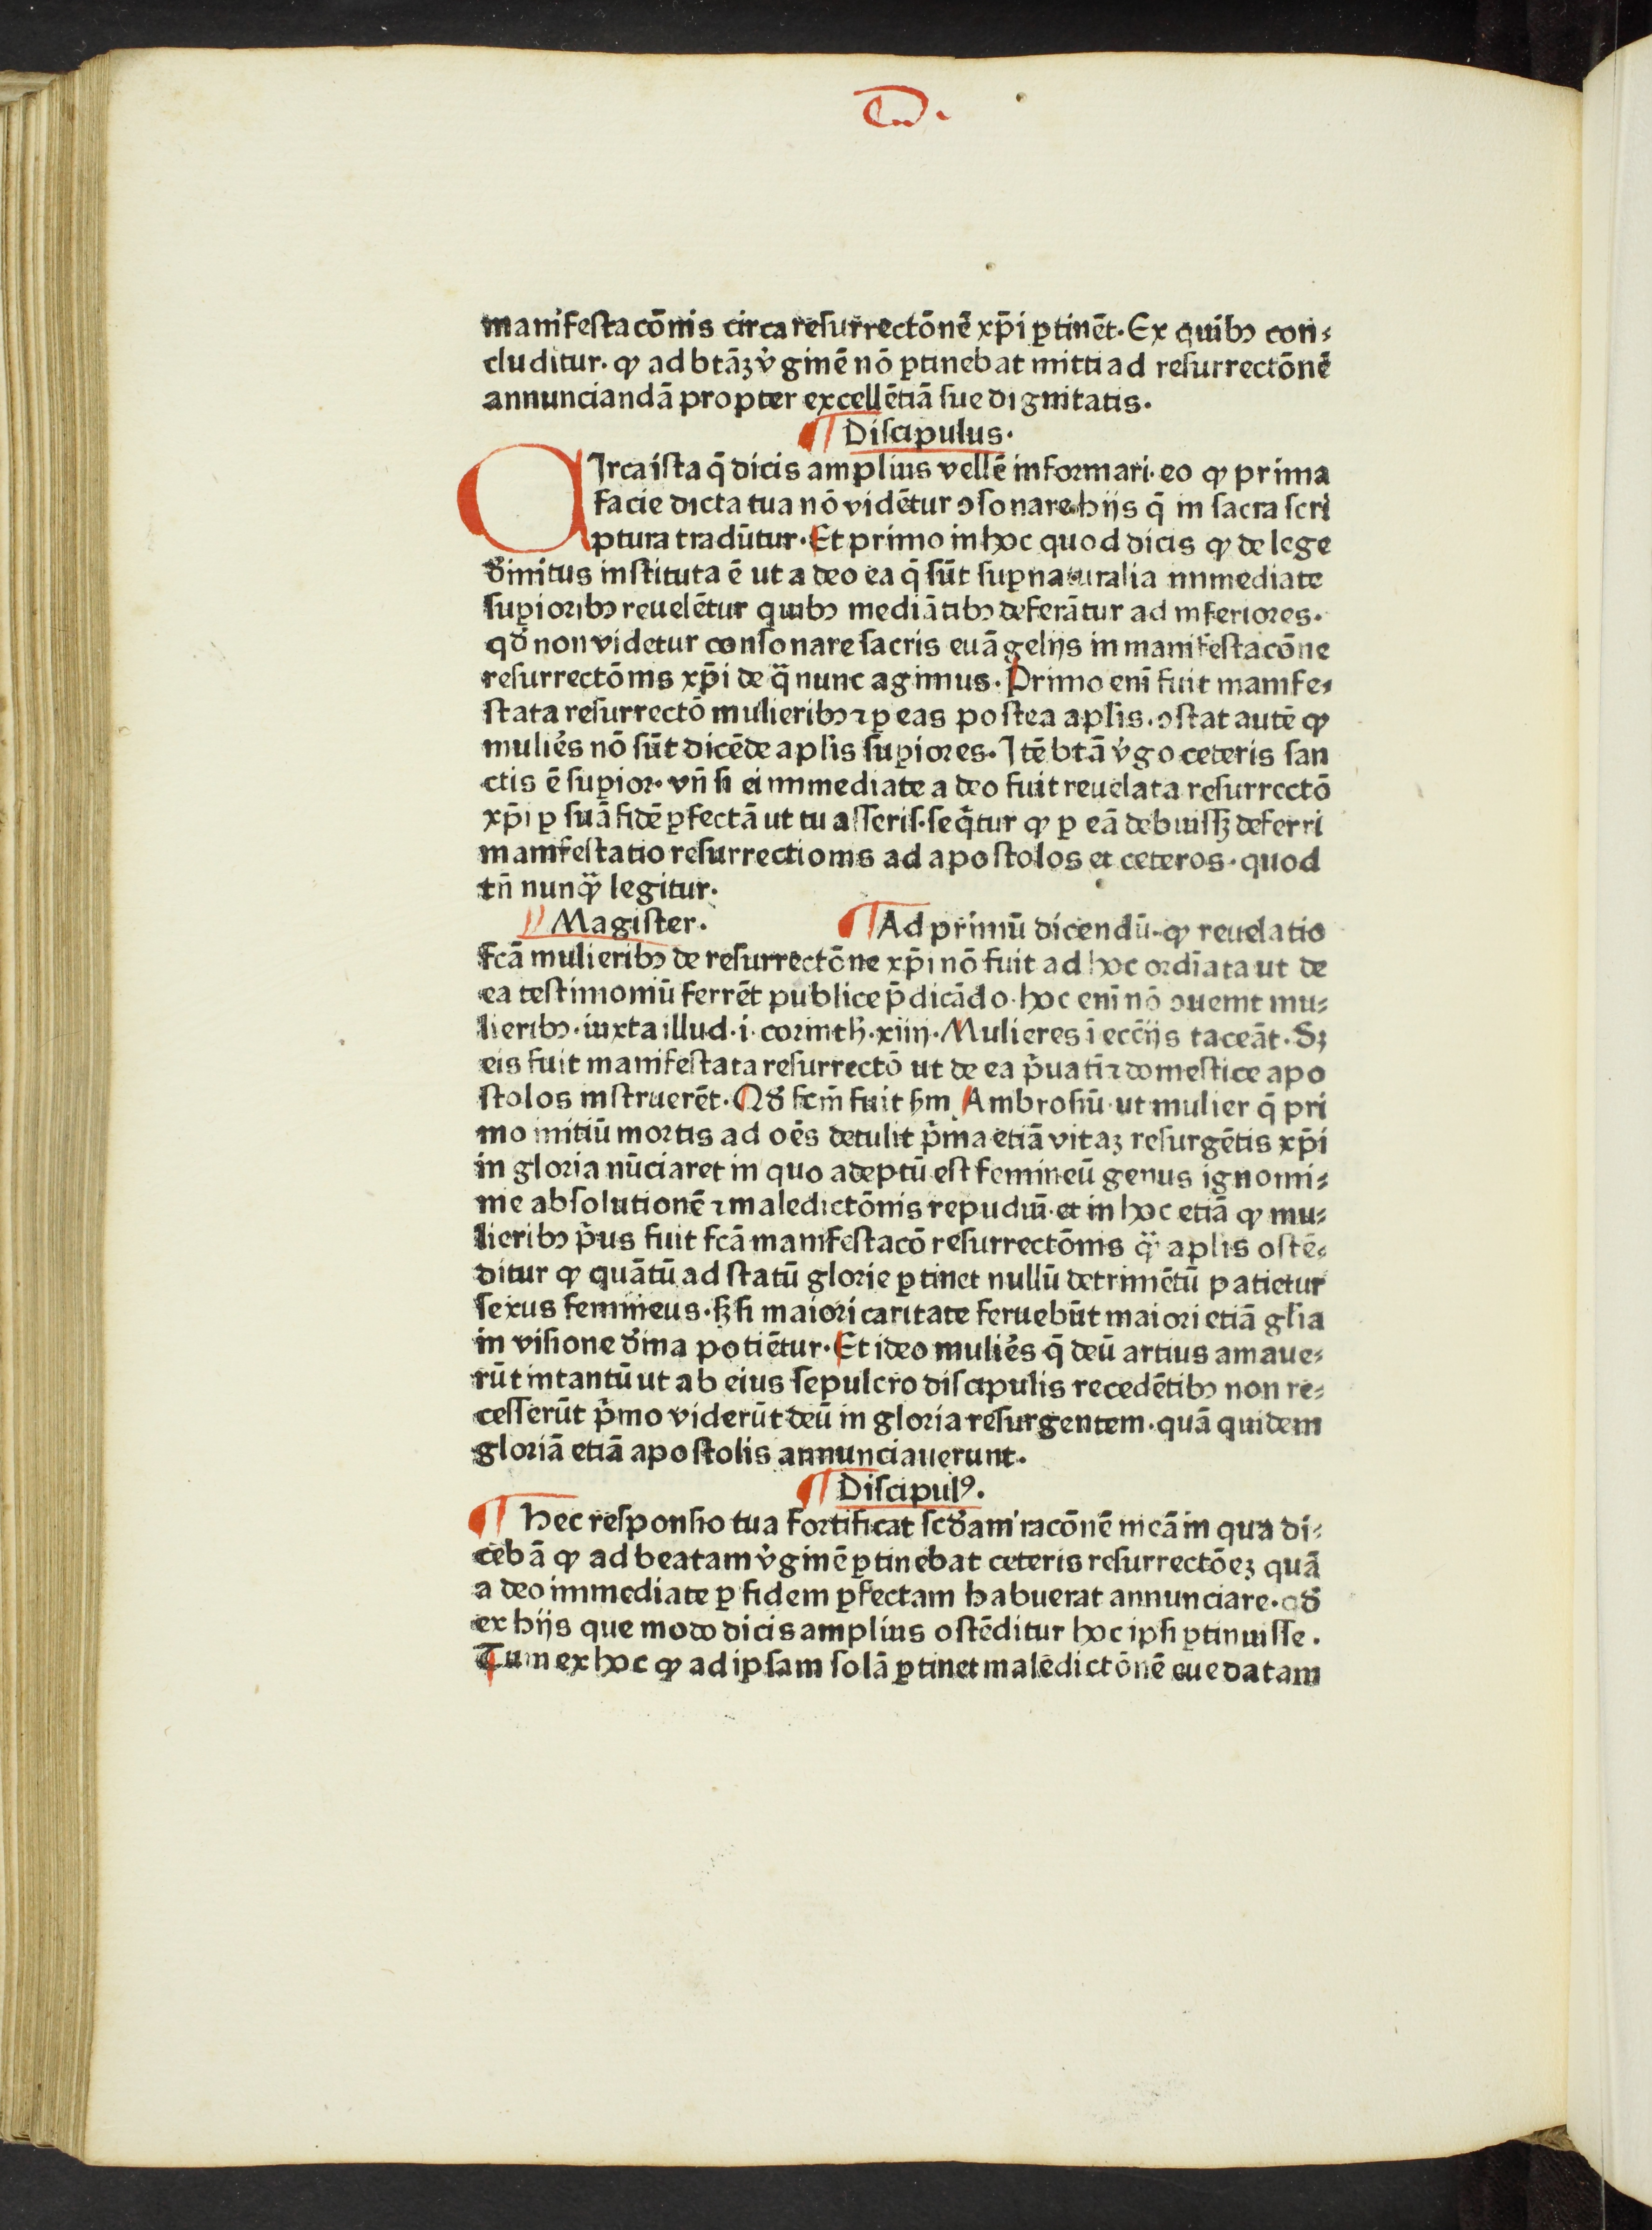 manifestacōnis circa resurrectōnē xp̄i ꝑtinēt. Ex quibꝫ con⸗
cluditur. ꝙ ad btāꝫ v̓ginē nō ꝑtinebat mitti ad resurrectōnē
annunciandā propter excellētiā sue dignitatis.
¶ Discipulus.
CIrca ista q̄ dicis amplius vellē informari. eo ꝙ prima
facie dicta tua nō vidētur ꝯsonare hijs q̄ in sacra scri
ptura tradūtur. Et primo in hoc quod dicis ꝙ de lege
d̓initus instituta ē ut a deo ea q̄ sūt suꝑnaturalia immediate
suꝑioribꝫ reuelētur quibꝫ mediātibꝫ deferātur ad inferiores.
qd̓ non videtur consonare sacris euāgelijs in manifestacōne
resurrectōnis xp̄i de q̄ nunc agimus. Primo enī fuit manife⸗
stata resurrectō mulieribꝫ ⁊ ꝑ eas postea aplis. ꝯstat autē ꝙ
mulie͛s nō sūt dicēde aplis suꝑiores. Itē btā v̓go ceteris san
ctis ē suꝑior. vn̄ si ei immediate a deo fuit reuelata resurrectō
xp̄i ꝑ suā fidē ꝑfectā ut tu asseris. seq̄tur ꝙ ꝑ eā debuissꝫ deferri
manifestatio resurrectionis ad apostolos et ceteros. quod
tn̄ nunq̄ legitur.
Magister. ¶ Ad primū dicendū. ꝙ reuelatio
fcā mulieribꝫ de resurrectōne xp̄i nō fuit ad hoc ordīata ut de
ea testimoniū ferrēt publice p̄dicādo. hoc enī nō ꝯuenit mu⸗
lieribꝫ. iuxta illud. i. corinth. xiiij. Mulieres ī ecc̄ijs taceāt. Sꝫ
eis fuit manifestata resurrectō ut de ea p̄uatī ⁊ domestice apo
stolos instruerēt. Qd̓ fcm̄ fuit s̄m Ambrosiū. ut mulier q̄ pri
mo initiū mortis ad oēs detulit p̄ma etiā vitaꝫ resurgētis xp̄i
in gloria nūciaret in quo adeptū est femineū genus ignomi⸗
nie absolutionē ⁊ maledictōnis repudiū. et in hoc etiā ꝙ mu⸗
lieribꝫ p̄us fuit fcā manifestacō resurrectōnis q̄ aplis ostē⸗
ditur ꝙ quātū ad statū glorie ꝑtinet nullū detrimētū patietur
sexus femineus. sꝫ si maiori caritate feruebūt maiori etiā glīa
in visione d̓ina potiētur. Et ideo mulie͛s q̄ deū artius amaue⸗
rūt intantū ut ab eius sepulcro discipulis recedētibꝫ non re⸗
cesserūt p̄mo viderūt deū in gloria resurgentem. quā quidem
gloriā etiā apostolis annunciauerunt.
¶ Discipulꝰ.
¶ Hec responsio tua fortificat scd̓am racōnē meā in qua di⸗
cebā ꝙ ad beatam v̓ginē ꝑtinebat ceteris resurrectōeꝫ quā
a deo immediate ꝑ fidem ꝑfectam habuerat annunciare. qd̓
ex hijs que modo dicis amplius ostēditur hoc ipsi ꝑtinuisse.
Tum ex hoc ꝙ ad ipsam solā ꝑtinet maledictōnē eue datam